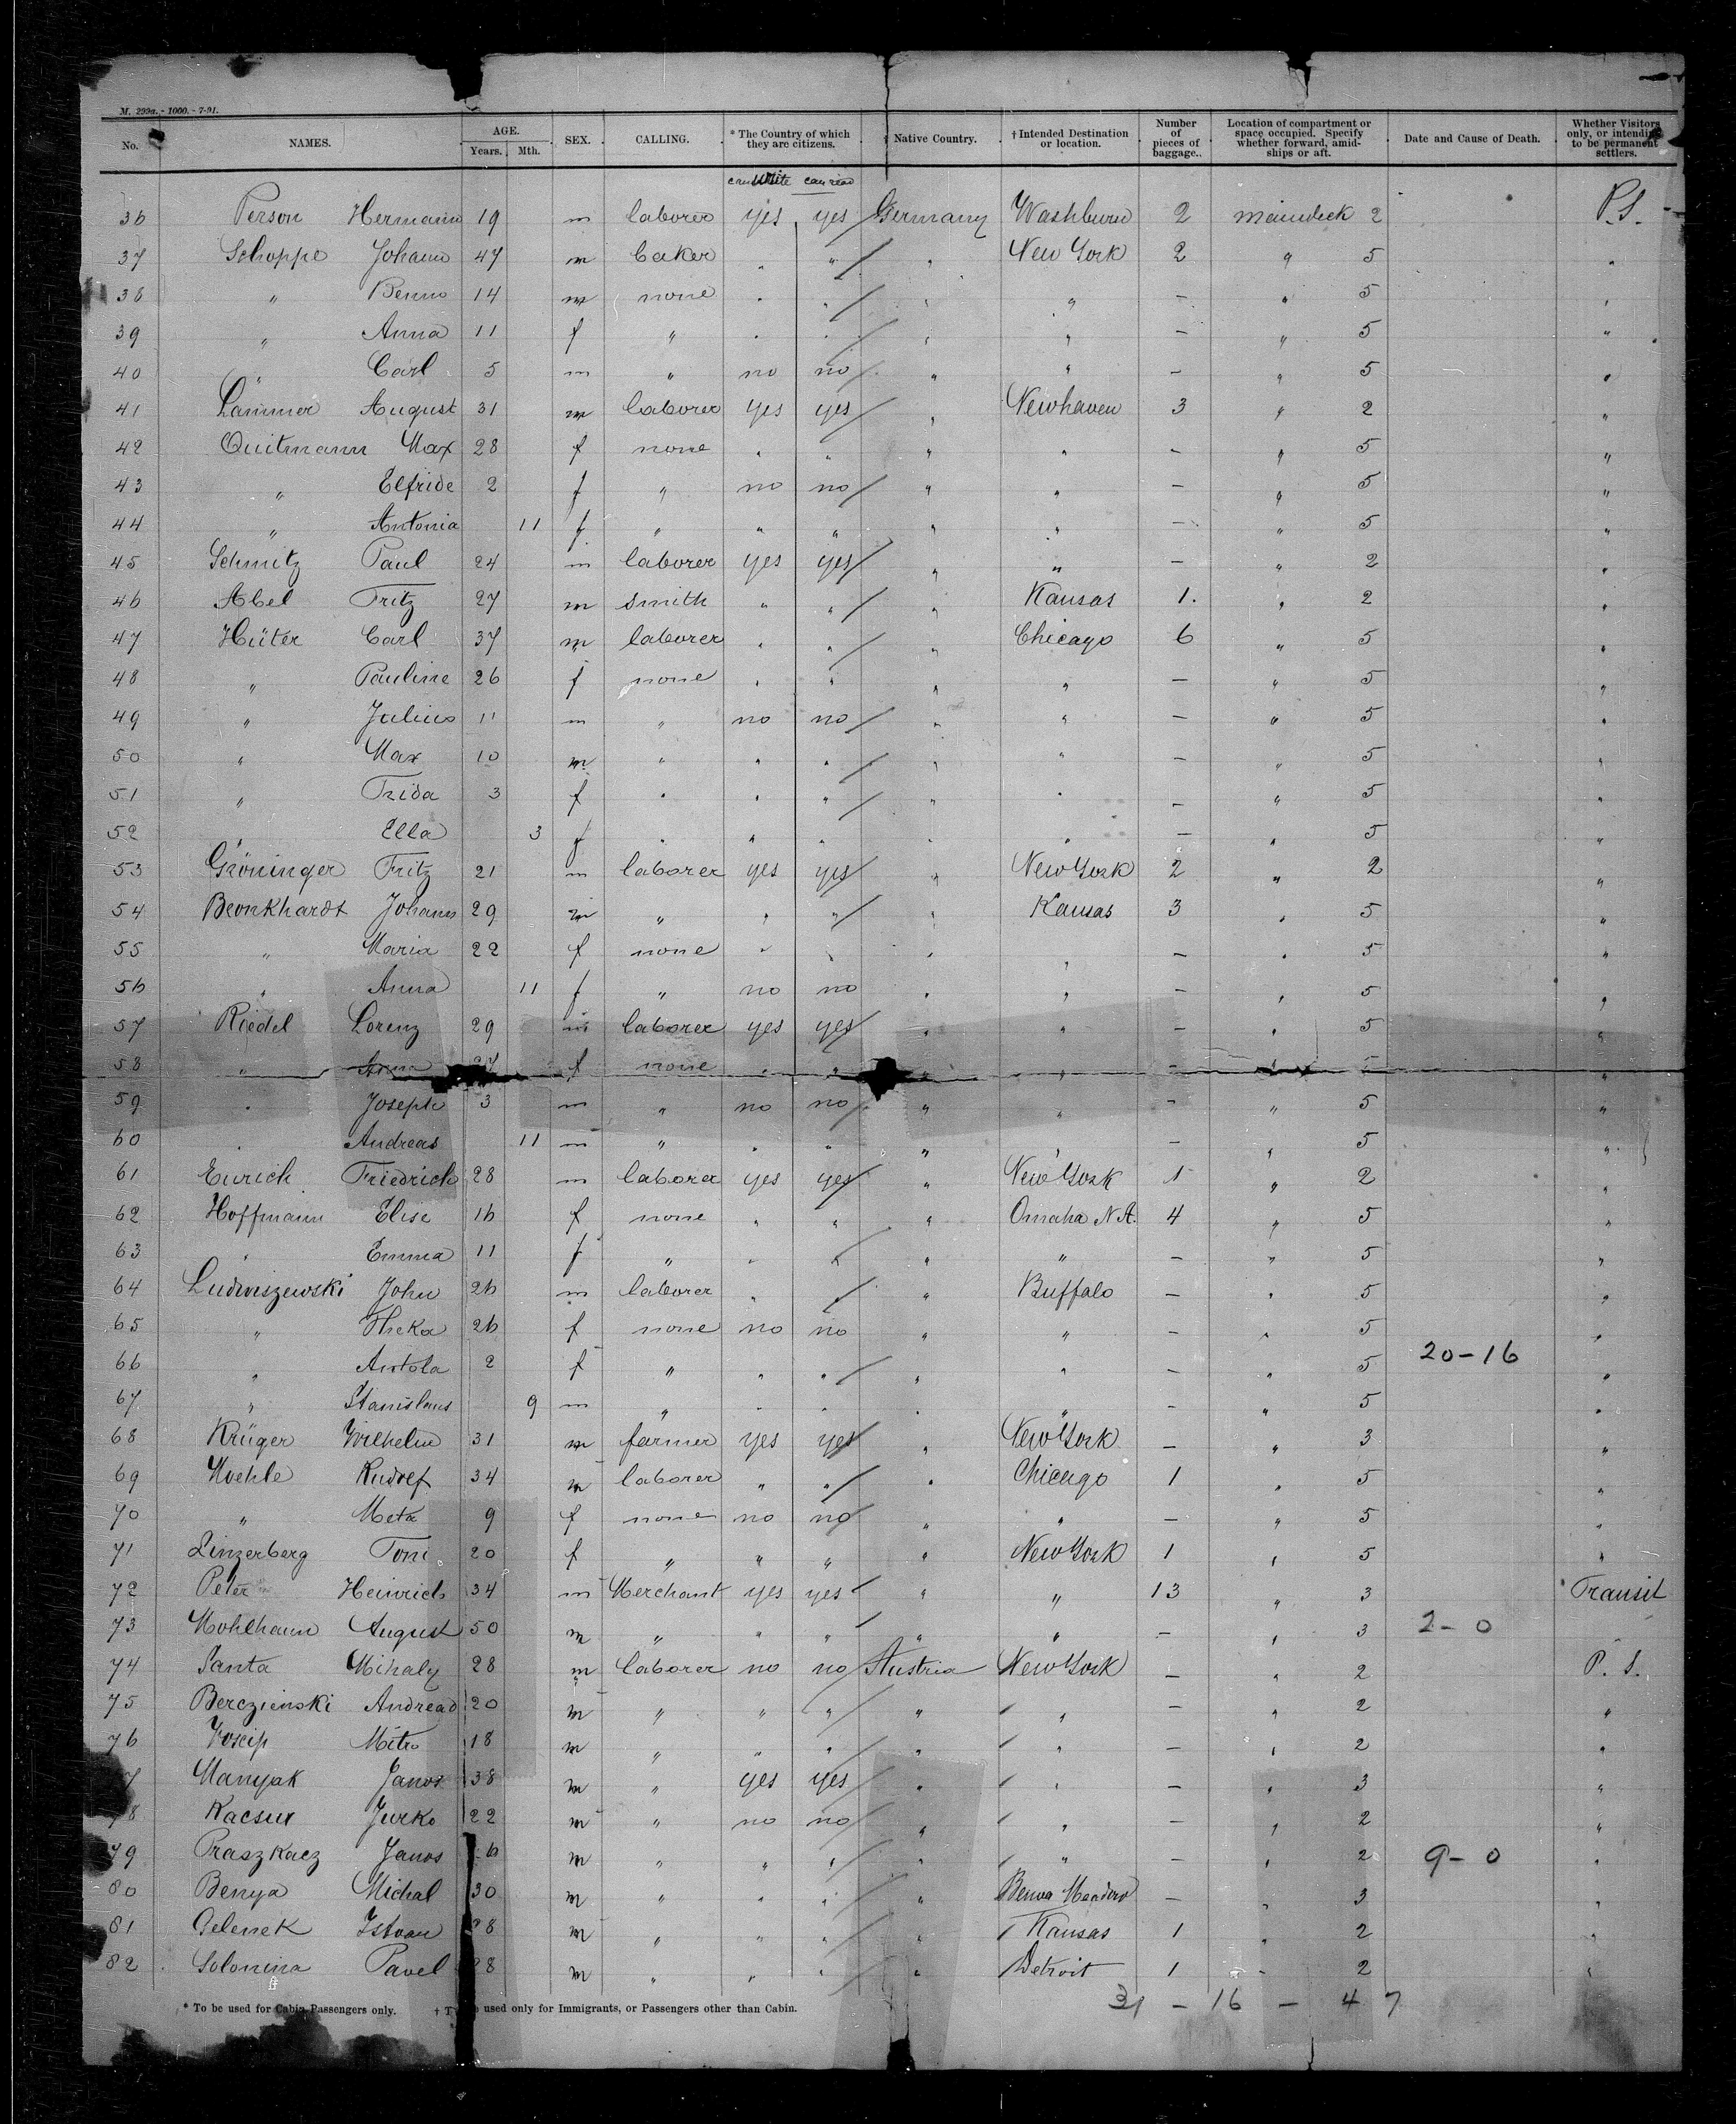 M. 299a. - 1000. - 7-91.
No. NAMES. AGE. Years. Mth. SEX. CALLING. * The Country of which they are citizens. Native Country. † Intended Destination or location. Number of pieces of baggage. Location of compartment or space occupied. Specify whether forward, amidships or aft. Date and Cause of Death. Whether Visitors only, or intending to be permanent settlers.
can write can read
36 Person Hermann 19 m laborer yes yes Germany Washburn 2 maindeck 2 P.S.
37 Schoppe Johann 47 m baker " " " New York 2 " 5 "
38 " Benno 14 m none " " " " — " 5 "
39 " Anna 11 f " " " " " — " 5 "
40 " Carl 5 m " no no " " — " 5 "
41 Lammer August 31 m laborer yes yes " Newhaven 3 " 2 "
42 Quitmann Max 28 f none " " " " — " 5 "
43 " Elfride 2 f " no no " " — " 5 "
44 " Antonia 11 f " " " " " — " 5 "
45 Schmitz Paul 24 m laborer yes yes " " — " 2 "
46 Abel Fritz 27 m smith " " " Kansas 1. " 2 "
47 Hüter Carl 37 m laborer " " " Chicago 6 " 5 "
48 " Pauline 26 f none " " " " — " 5 "
49 " Julius 11 m " no no " " — " 5 "
50 " Max 10 m " " " " " — " 5 "
51 " Frida 3 f " " " " " — " 5 "
52 " Ella 3 f " " " " " — " 5 "
53 Gröninger Fritz 21 m laborer yes yes " New York 2 " 2 "
54 Bronkhardt Johann 29 m " " " " Kansas 3 " 5 "
55 " Maria 22 f none " " " " — " 5 "
56 " Anna 11 f " no no " " — " 5 "
57 Riedel Lorenz 29 m laborer yes yes " " — " 5 "
58 " Anna 27 f none " " " " — " 5 "
59 " Joseph 3 m " no no " " — " 5 "
60 " Andreas 11 m " " " " " — " 5 "
61 Eurich Friedrich 28 m laborer yes yes " New York 1 " 2 "
62 Hoffmann Elise 16 f none " " " Omaha N.A. 4 " 5 "
63 " Emma 11 f " " " " " — " 5 "
64 Ludwiszewski John 26 m laborer " " " Buffalo — " 5 "
65 " Theka 26 f none no no " " — " 5 "
66 " Antola 2 f " " " " " — " 5 20-16 "
67 " Stanislaus 9 m " " " " " — " 5 "
68 Krüger Wilhelm 31 m farmer yes yes " New York — " 3 "
69 Moehle Rudolf 34 m laborer " " " Chicago 1 " 5 "
70 " Meta 9 f none no no " " — " 5 "
71 Linzerberg Toni 20 f " " " " New York 1 " 5 "
72 Peter Heinrich 34 m Merchant yes yes " " 13 " 3 Transit
73 Mohlhaun August 50 m " " " " " — " 3 2-0
74 Santa Mihaly 28 m laborer no no Austria New York — " 2 P. S.
75 Berczienski Andread 20 m " " " " " — " 2 "
76 Mitro 18 m " " " " " — " 2 "
Manyak Janos 38 m " yes yes " " — " 3 "
78 Kacsur Jurko 22 m " no no " " — " 2 "
79 Praszkacz Janos 6 m " " " " " — " 2 9-0 "
80 Benya Michal 30 m " " " " — " 3 "
81 Gelenek Istvan 28 m " " " " Kansas 1 " 2 "
82 Solonina Pavel 28 m " " " " Detroit 1 " 2 "
* To be used for Cabin Passengers only. † T used only for Immigrants, or Passengers other than Cabin.
31 - 16 - 47